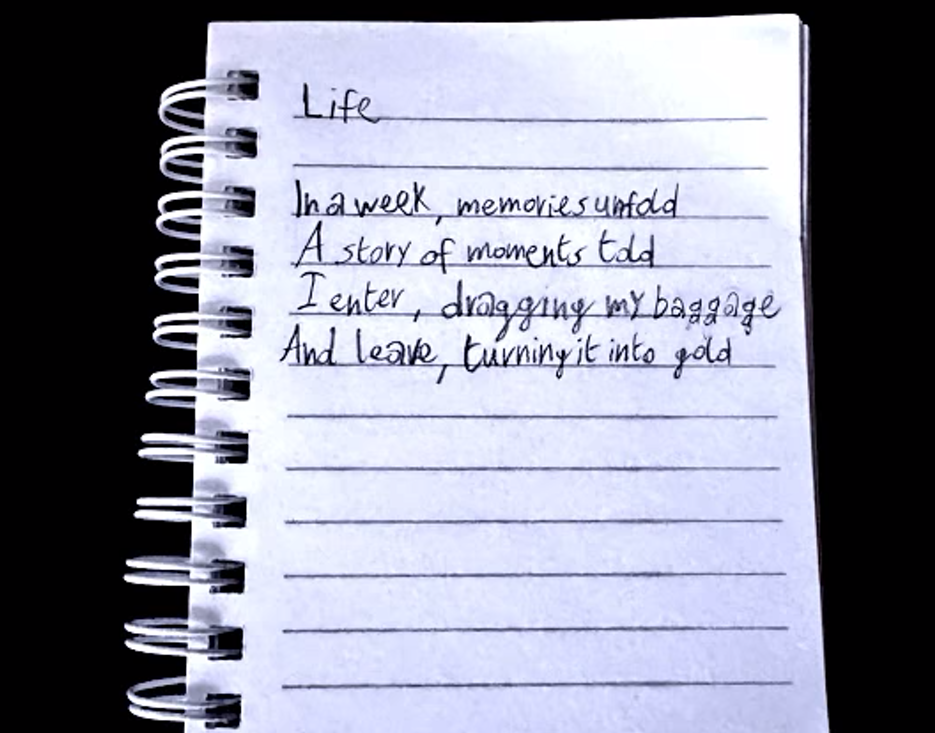 Life
In a week, memories unfold
A story of moments told
I enter, dragging my baggage
And leave, turning it into gold